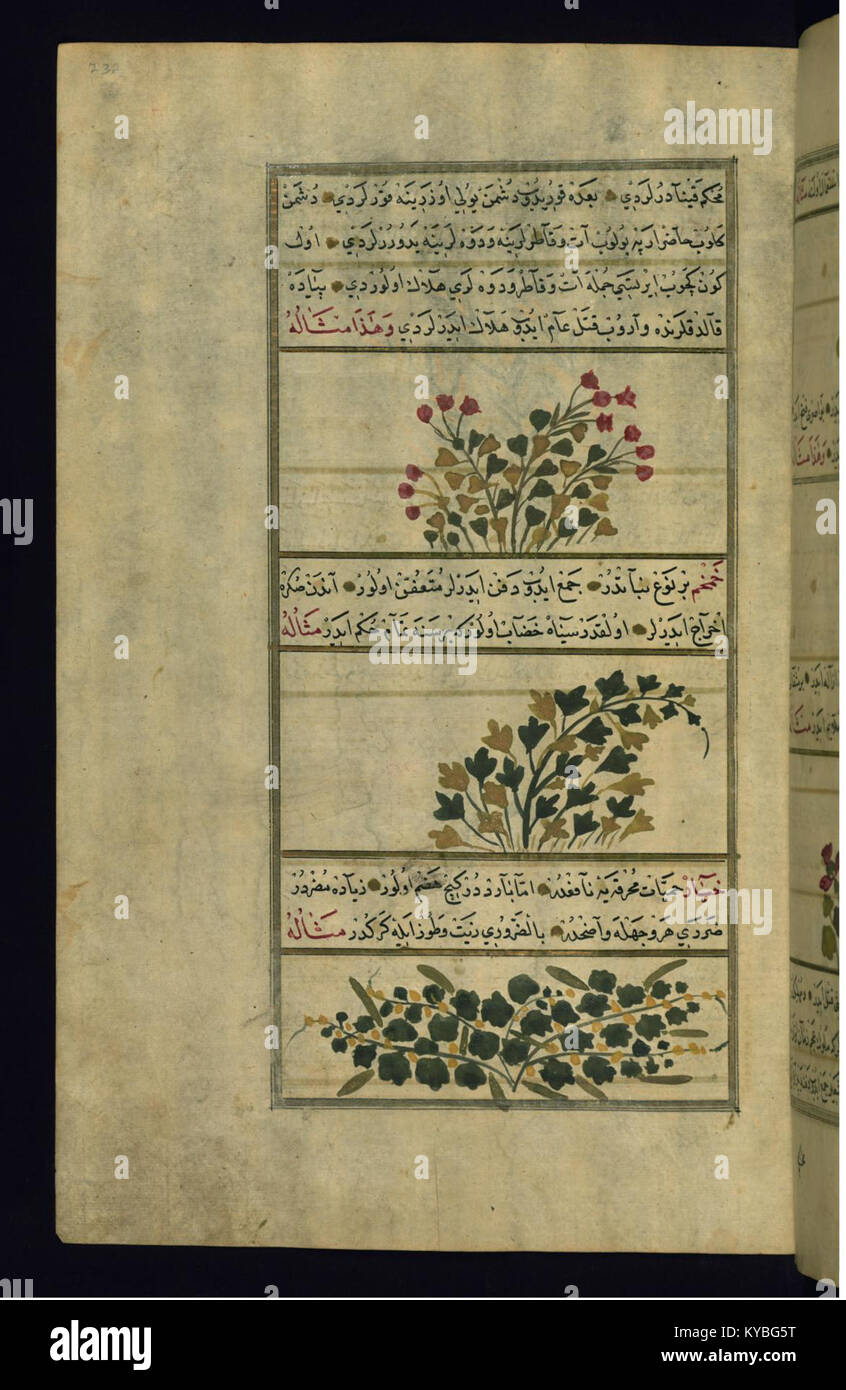 238
محكم قيناد‌رلردي بعده قوريدوب دشمن يولي اوزرينه قورلردي دشمن
كلوب حاضر اربه بولوب آت وقاطرلرينه ودوه لرينه يدوررلردي اول
كون كچوب ايرتسي جمله آت وقاطر ودوه لري هلاك اولوردي پياده
قالدقلرنده واروب قتل عام ايدوب هلاك ايدرلردي وهذا مثاله
بر نوع نباتدر جمع ايدوب دفن ايدرلر متعفن اولور آندن صكره
اخراج ايدرلر اولقدر سياه خضاب اولور كه برسنه تمام حكم ايدر مثاله
خيار حميات محرقه يه نافعدر اما بارددر كيج هضم اولور زياده مضردر
ضرري هر وجهله واضحدر بالضروري زيت وطوز ايله كركدر مثاله
alamy
alamy
Image ID: KYBG5T
www.alamy.com